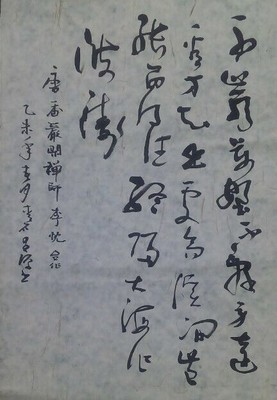 千巖萬壑不辭勞遠
看方知出處高溪澗豈
能留得住終歸大海作
波濤
唐香嚴閒禪師李忱合作
乙未年